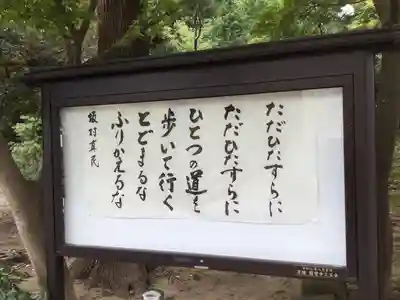 ただひたすらに
ただひたすらに
ひとつの道を
歩いて行く
とどまるな
ふりかえるな
坂村真民